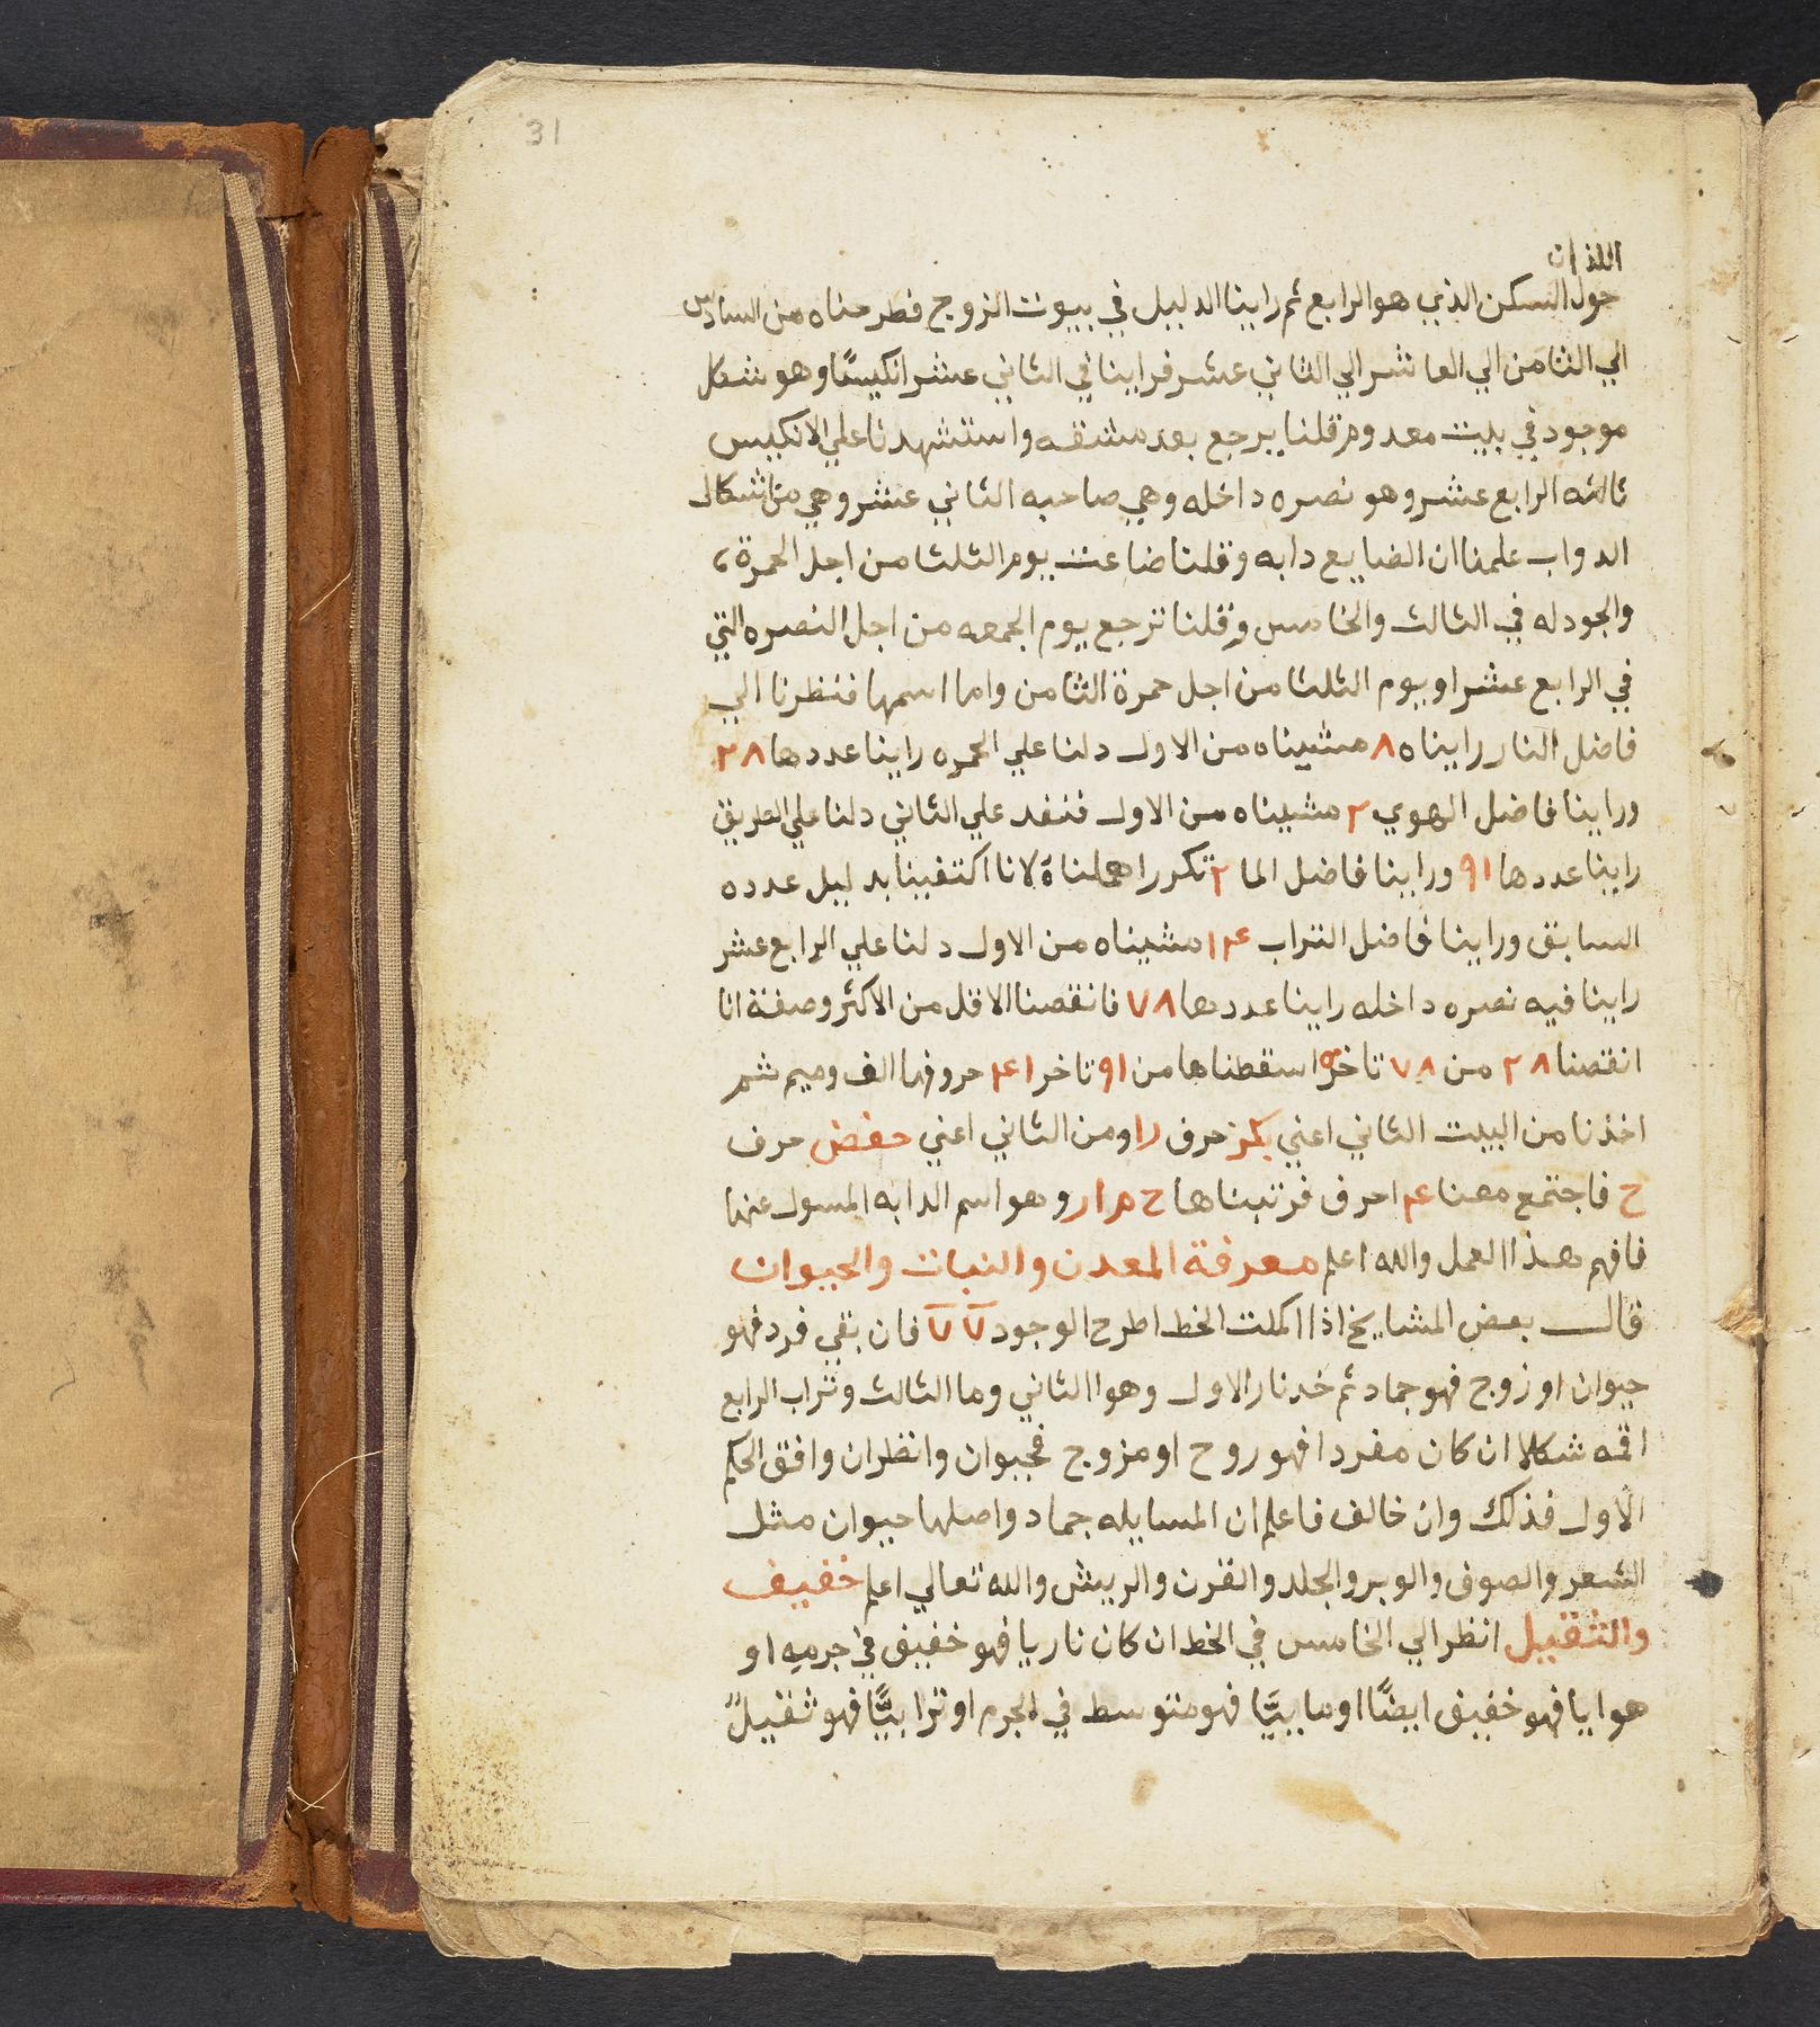 31
اللذان
حول السكن الذي هو الرابع ثم راينا الدليل في بيوت الزوج فطرحناه من السادس
الي الثامن الي العاشر الي الثاني عشر فراينا في الثاني عشر انكيسًا وهو شكل
موجود في بيت معدوم قلنا يرجع بعد مشقه واستشهدنا علي الانكيس
ثالثه الرابع عشر وهو نصره داخله وهي صاحبه الثاني عشر وهي من اشكال
الدواب علمنا ان الضايع دابه وقلنا ضاعت يوم الثلثا من اجل الحمرة
والجودله في الثالث والخامس وقلنا ترجع يوم الجمعه من اجل النصره التي
في الرابع عشر او يوم الثلثا من اجل حمرة الثامن واما اسمها فنظرنا الي
فاضل النار رايناه ٨ مشيناه من الاول دلنا علي الحمره راينا عددها ٢٨
وراينا فاضل الهوي ٢ مشيناه من الاول فنفد علي الثاني دلنا علي الطريق
راينا عددها ٩١ وراينا فاضل الما ٢ تكرر اهملناه لانا اكتفينا بدليل عدده
السابق وراينا فاضل التراب ١٤ مشيناه من الاول دلنا علي الرابع عشر
راينا فيه نصره داخله راينا عددها ٧٨ فانقصنا الاقل من الاكثر وصفة انا
انقصنا ٢٨ من ٧٨ تاخر ٥٠ اسقطناها من ٩١ تاخر ٤١ حروفها الف وميم ثم
اخذنا من البيت الثاني اعني بكر حرف را ومن الثاني اعني حفض حرف
ح فاجتمع معنا ٤ احرف فرتبناها ح م ا ر وهو اسم الدابه المسول عنها
فافهم هذا العمل والله اعلم معرفة المعدن والنبات والحيوان
قال بعض المشايخ اذا اكملت الخط اطرح الوجود ٧ ٧ فان بقي فرد فهو
حيوان او زوج فهو جماد ثم خد نار الاول وهوا الثاني وما الثالث وتراب الرابع
اقمه شكلا ان كان مفردا فهو روح او مزوج فحيوان وانظر ان وافق الحكم
الاول فذلك وان خالف فاعلم ان المسايله جماد واصلها حيوان مثل
الشعر والصوف والوبر والجلد والقرن والريش والله تعالي اعلم خفيف
والثقيل انظر الي الخامس في الخط ان كان ناريا فهو خفيف في جرمه او
هوايا فهو خفيف ايضًا او ماييًا فهو متوسط في الجرم او ترابيًا فهو ثقيل